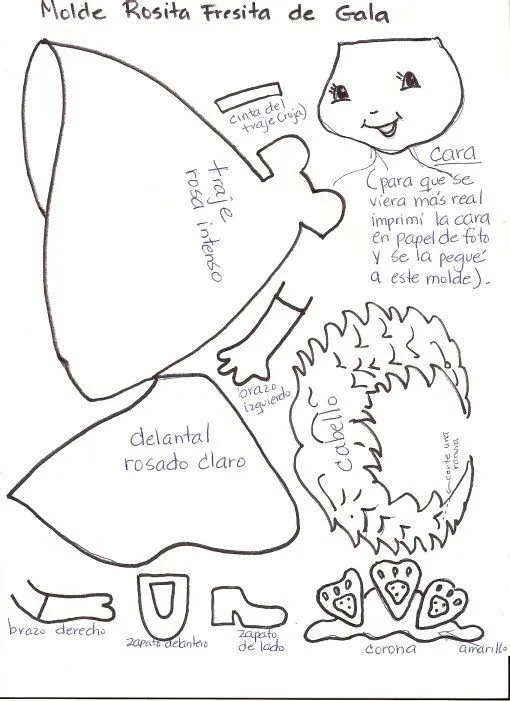 Molde Rosita Fresita de Gala
cinta del
traje (roja)
cara
(para que se
viera más real
imprimí la cara
en papel de foto
y se la pegué
a este molde).
traje
rosa intenso
brazo
izquierdo
cabello
corte una
ranura
delantal
rosado claro
brazo derecho
zapato delantero
zapato
de lado
corona
amarillo